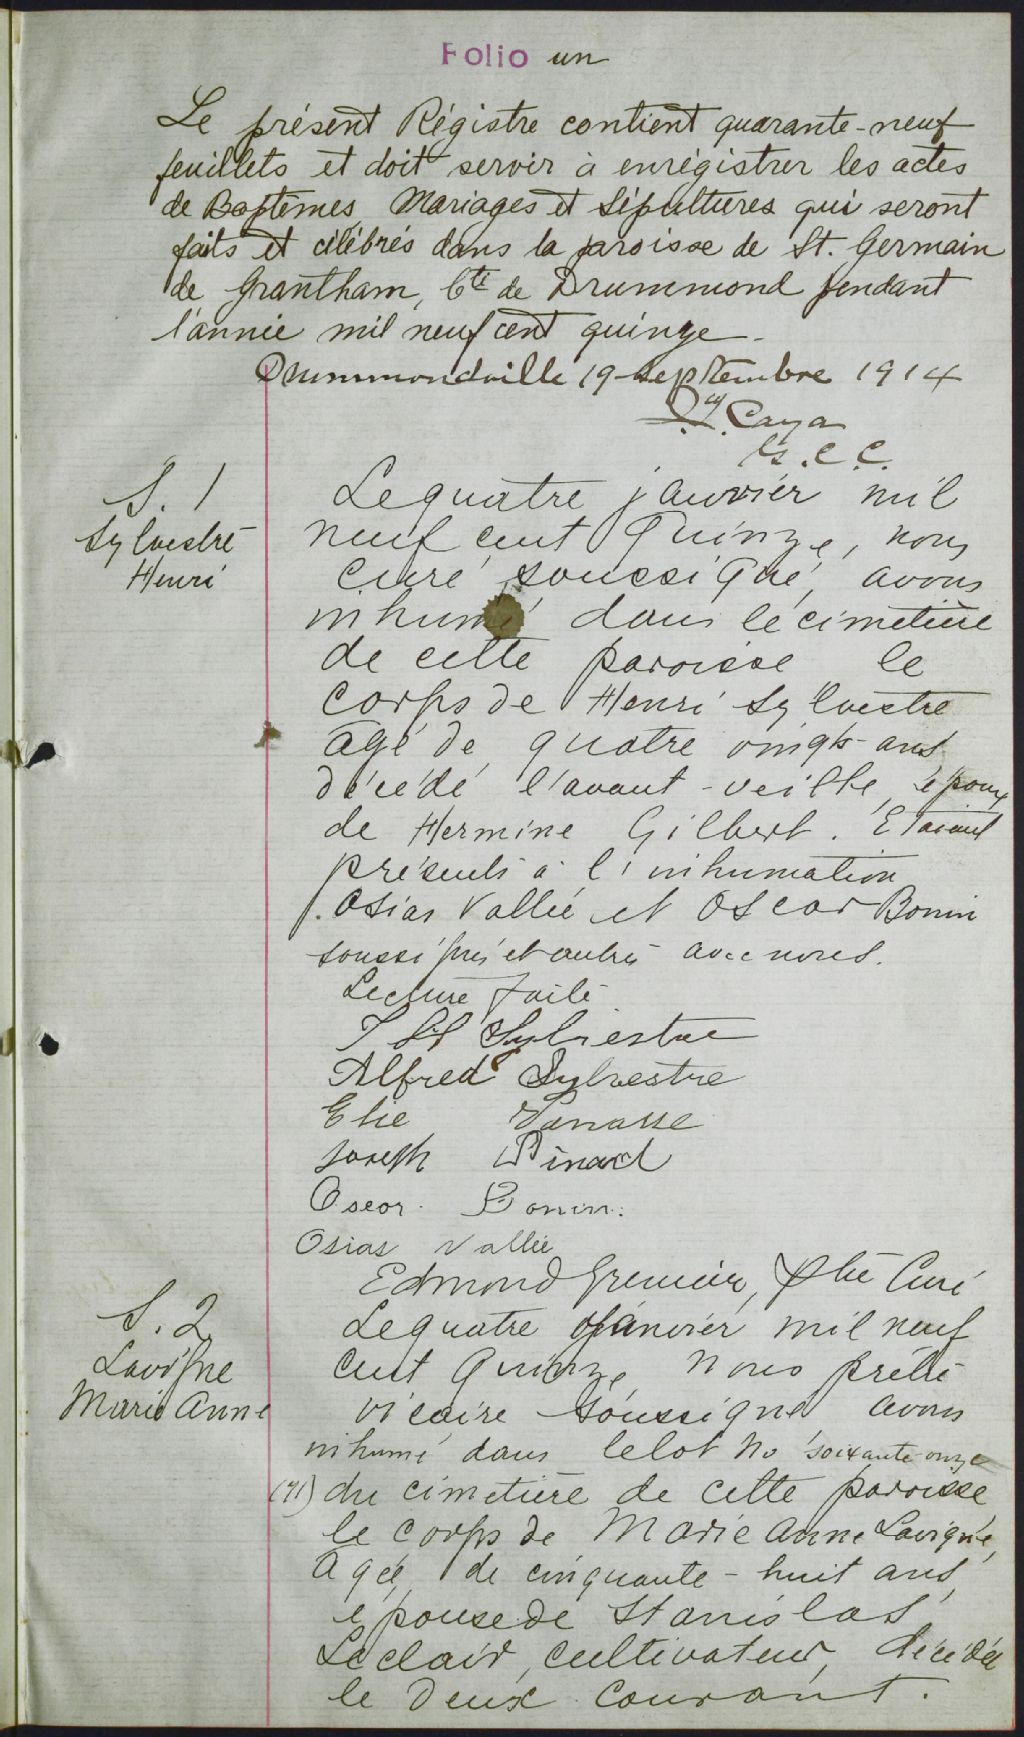 Folio un
Le présent Régistre contient quarante-neuf
feuillets et doit servir à enrégistrer les actes
de Baptêmes, Mariages et Sépultures qui seront
faits et célébrés dans la paroisse de St. Germain
de Grantham, Cté de Drummond pendant
l'année mil neuf cent quinze.
Drummondville 19 Septembre 1914
Caya
C. C.
S. 1
Sylvestre
Henri
Le quatre janvier mil
neuf cent Quinze, nous
curé soussigné, avons
inhumé dans le cimetière
de cette paroisse le
corps de Henri Sylvestre
âgé de quatre vingts ans
décédé l'avant-veille, époux
de Hermine Gilbert. Etaient
présents à l'inhumation
Osias Vallée et Oscar Bonin
soussignés et autres avec nous.
Lecture faite
Sylvestre
Alfred Sylvestre
Elie Vanasse
Joseph Pinard
Oscar Bonin.
Osias Vallée
Edmond Grenier, Ptre Curé
S. 2
Lavigne
Marie Anne
Le quatre janvier mil neuf
cent Quinze, Nous prêtre
vicaire soussigné avons
inhumé dans le lot No soixante-onze
(71) du cimetière de cette paroisse
le corps de Marie Anne Lavigne,
âgée de cinquante-huit ans,
épouse de Stanislas
Leclair, cultivateur, décédée
le deux courant.